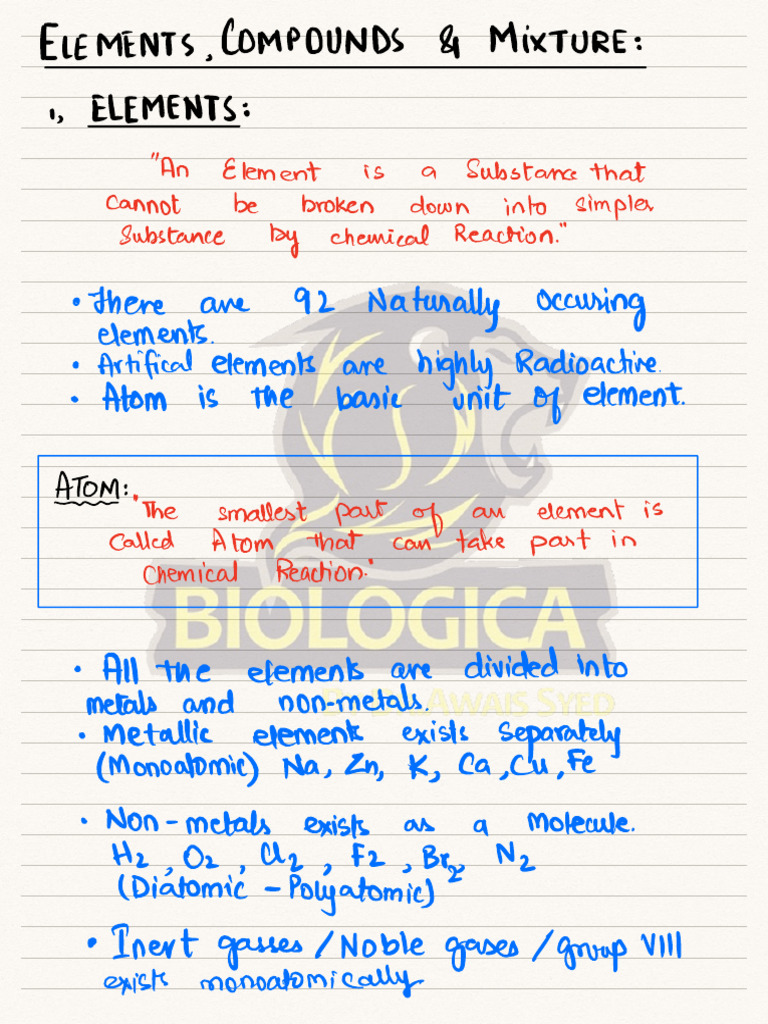 ELEMENTS, COMPOUNDS & MIXTURE:
1, ELEMENTS:
"An Element is a Substance that
Cannot be broken down into simpler
Substance by chemical Reaction."
• There are 92 Naturally occuring
elements.
• Artifical elements are highly Radioactive.
• Atom is the basic unit of element.
ATOM:
"The smallest part of an element is
Called Atom that can take part in
Chemical Reaction."
BIOLOGICA
• All the elements are divided into
metals and non-metals.
By Dr. AWAIS SYED
• Metallic elements exists separately
(Monoatomic) Na, Zn, K, Ca, Cu, Fe
• Non-metals exists as a molecule.
H2, O2, Cl2, F2, Br2, N2
(Diatomic - Polyatomic)
• Inert gasses / Noble gases / group VIII
exists monoatomically